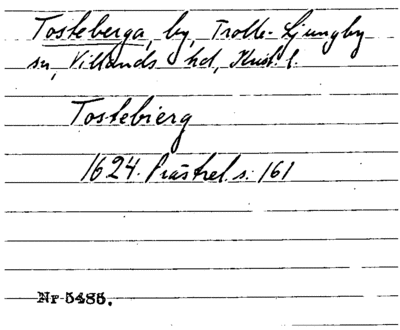 Tosteberga, by, Trolle-Ljungby
sn, Villands hd, Krist. l.
Tostebierg
1624. Prästrel. s. 161
Nr 5485.